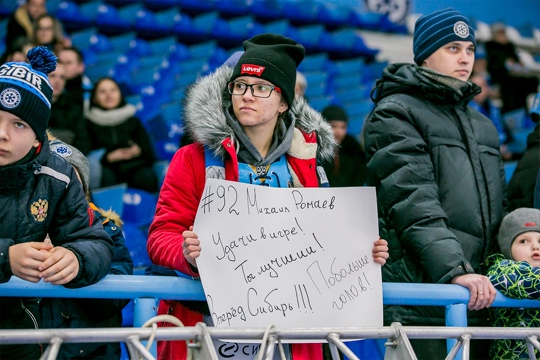 SIBIR
LEVI'S
#92 Михаил Рамаев
Удачи в игре!
Ты лучший!
Вперёд Сибирь!!!
Побольше
голов!